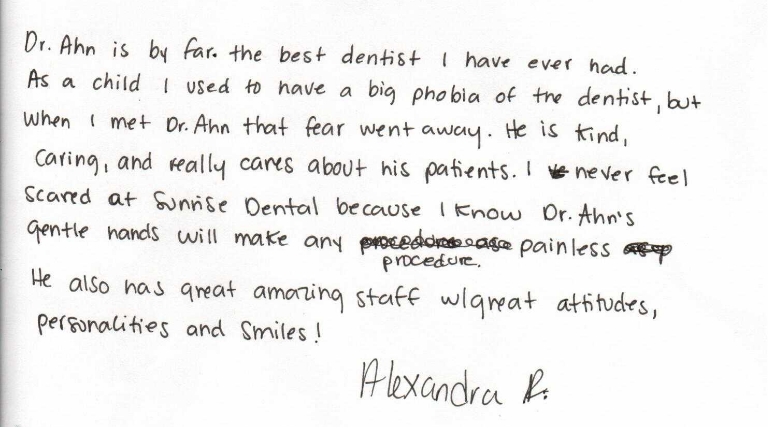 Dr. Ahn is by far. the best dentist I have ever had.
As a child I used to have a big phobia of the dentist, but
when I met Dr. Ahn that fear went away. He is kind,
caring, and really cares about his patients. I never feel
scared at Sunrise Dental because I know Dr. Ahn's
gentle hands will make any painless
procedure.
He also has great amazing staff w/great attitudes,
personalities and smiles!
Alexandra R.